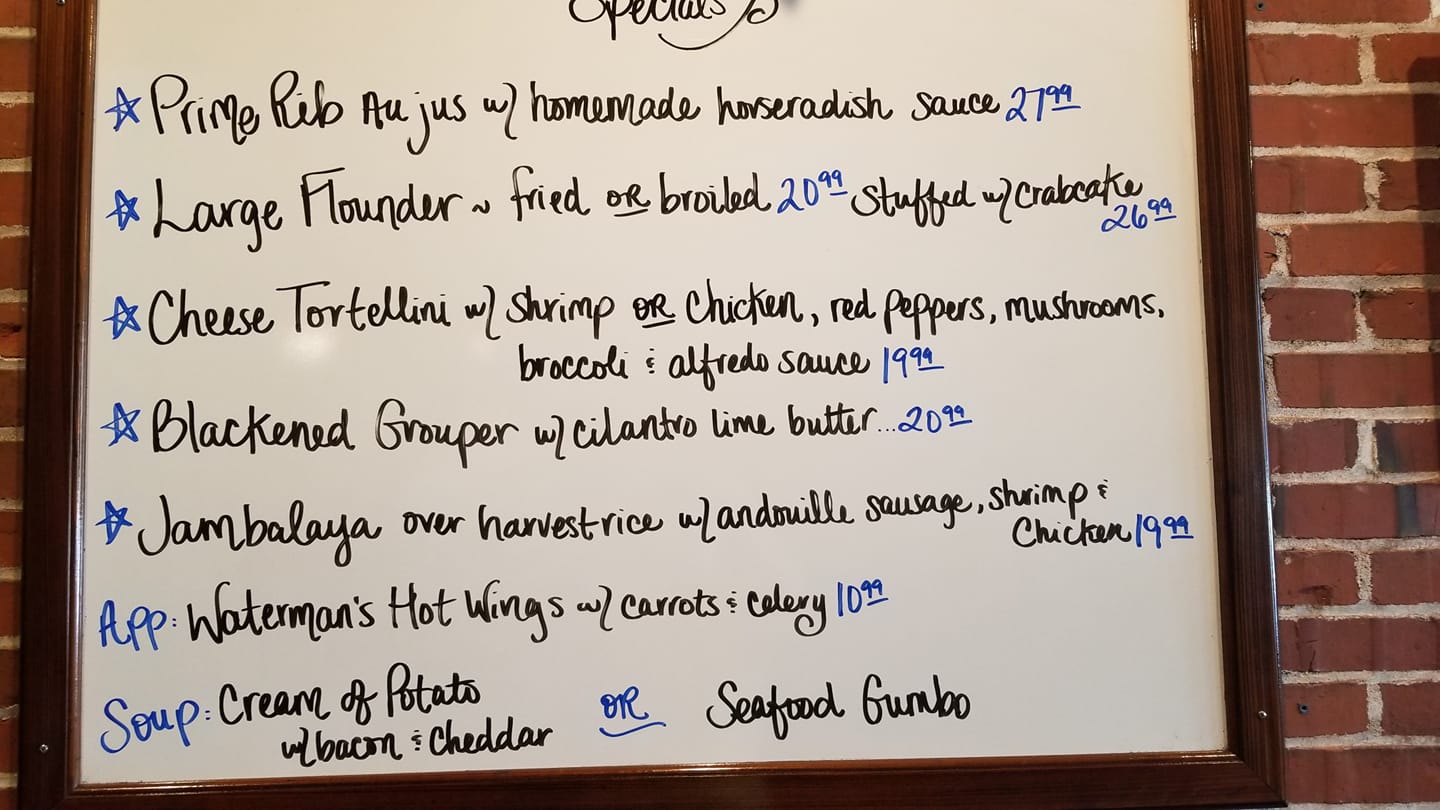 Specials
Prime Rib Au jus w/ homemade horseradish sauce 27⁹⁹
Large Flounder ~ fried OR broiled 20⁹⁹ Stuffed w/ Crabcake
26⁹⁹
Cheese Tortellini w/ Shrimp OR Chicken, red peppers, mushrooms,
broccoli & alfredo sauce 19⁹⁹
Blackened Grouper w/ cilantro lime butter...20⁹⁹
Jambalaya over harvest rice w/ andouille sausage, shrimp &
Chicken 19⁹⁹
App: Waterman's Hot Wings w/ carrots & celery 10⁹⁹
Soup: Cream of Potato OR Seafood Gumbo
w/ bacon & Cheddar